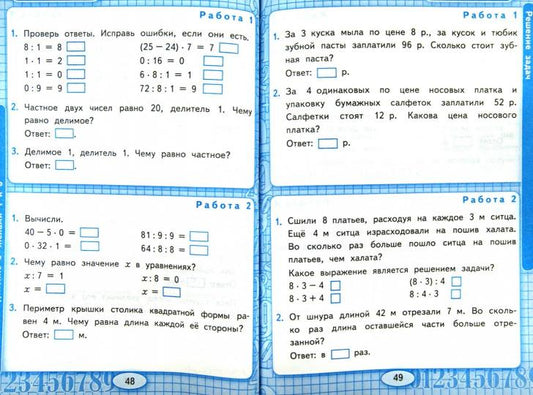 Работа 1
1. Проверь ответы. Исправь ошибки, если они есть.
8 : 1 = 8 (25 − 24) · 7 = 7
1 · 1 = 2 0 : 16 = 0
1 : 1 = 0 6 · 8 : 1 = 1
0 : 9 = 9 72 : 8 : 1 = 9
2. Частное двух чисел равно 20, делитель 1. Чему
равно делимое?
Ответ: .
3. Делимое 1, делитель 1. Чему равно частное?
Ответ: .
Работа 2
1. Вычисли.
40 − 5 · 0 = 81 : 9 : 9 =
0 · 32 · 1 = 64 : 8 : 8 =
2. Чему равно значение x в уравнениях?
x : 7 = 1 x : 8 = 0
x = x =
3. Периметр крышки столика квадратной формы ра-
вен 4 м. Чему равна длина каждой её стороны?
Ответ: м.
23456789
48
Работа 1
Решение задач
1. За 3 куска мыла по цене 8 р., за кусок и тюбик
зубной пасты заплатили 96 р. Сколько стоит зуб-
ная паста?
Ответ: р.
2. За 4 одинаковых по цене носовых платка и
упаковку бумажных салфеток заплатили 52 р.
Салфетки стоят 12 р. Какова цена носового
платка?
Ответ: р.
Работа 2
1. Сшили 8 платьев, расходуя на каждое 3 м ситца.
Ещё 4 м ситца израсходовали на пошив халата.
Во сколько раз больше пошло ситца на пошив
платьев, чем халата?
Какое выражение является решением задачи?
8 · 3 − 4 (8 · 3) : 4
8 · 3 + 4 8 : 4 · 3
2. От шнура длиной 42 м отрезали 7 м. Во сколь-
ко раз длина оставшейся части больше отре-
занной?
Ответ: в раз.
49